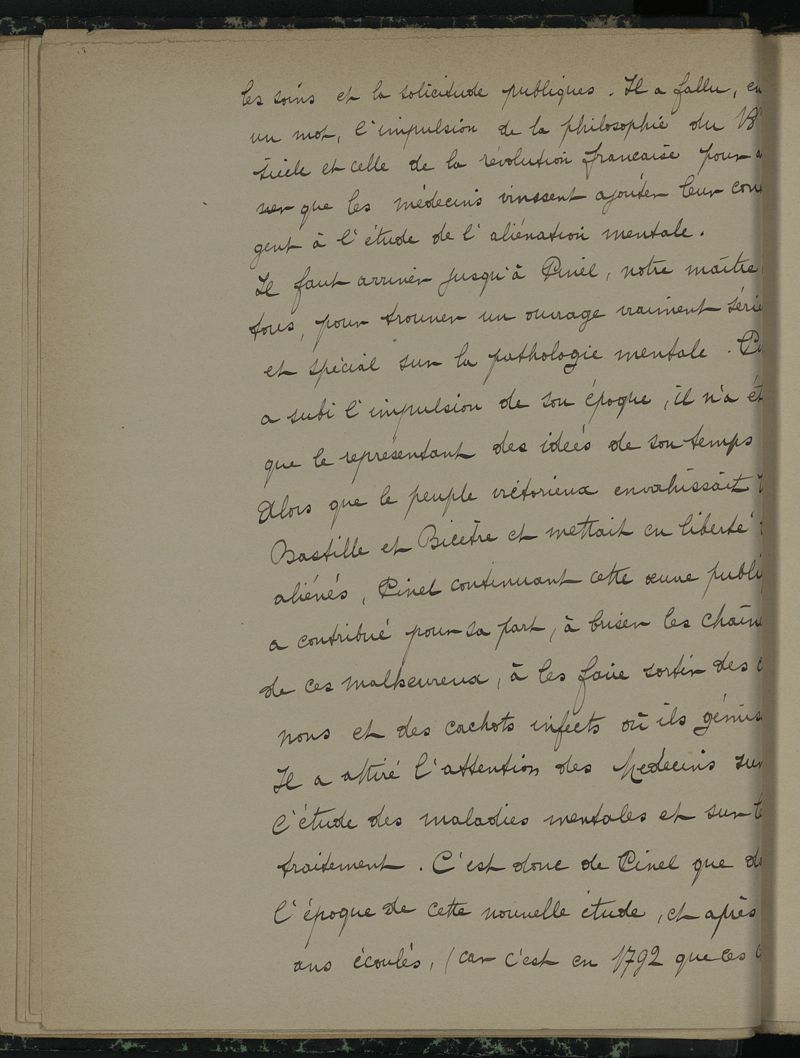 les soins et la solicitude publiques. Il a fallu, en
un mot, l'impulsion de la philosophie du 18
siècle et celle de la révolution française pour a
ner que les médecins vinssent ajouter leur con
gent à l'étude de l'aliénation mentale.
Il faut arriver jusqu'à Pinel, notre maître
tous, pour trouver un ouvrage vraiment série
et spécial sur la pathologie mentale. P
a subi l'impulsion de son époque, il n'a ét
que le représentant des idées de son temps
Alors que le peuple victorieux envahissait
Bastille et Bicêtre et mettait en liberté
aliénés, Pinel continuant cette œuvre publi
a contribué pour sa part, à briser les chaîn
de ces malheureux, à les faire sortir des c
nons et des cachots infects où ils gémis
Il a attiré l'attention des Médecins sur
l'étude des maladies mentales et sur l
traitement. C'est donc de Pinel que d
l'époque de cette nouvelle étude, et après
ans écoulés, (car c'est en 1792 que ces